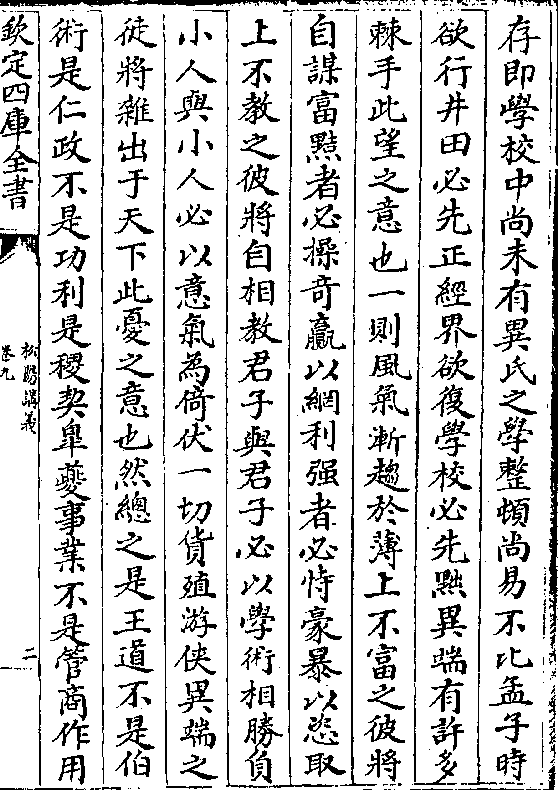 存即學校中尚未有異氏之學整頓尚易不比孟子時
欲行井田必先正經界欲復學校必先黜異端有許多
棘手此望之意也一則風氣漸趨於薄上不富之彼將
自謀富黠者必操奇贏以網利强者必恃豪暴以恣取
上不教之彼將自相教君子與君子必以學術相勝負
小人與小人必以意氣為倚伏一切貨殖游俠異端之
徒將雜出于天下此憂之意也然總之是王道不是伯
術是仁政不是功利是稷契臯夔事業不是管商作用
欽定四庫全書
松陽講義
卷九
二